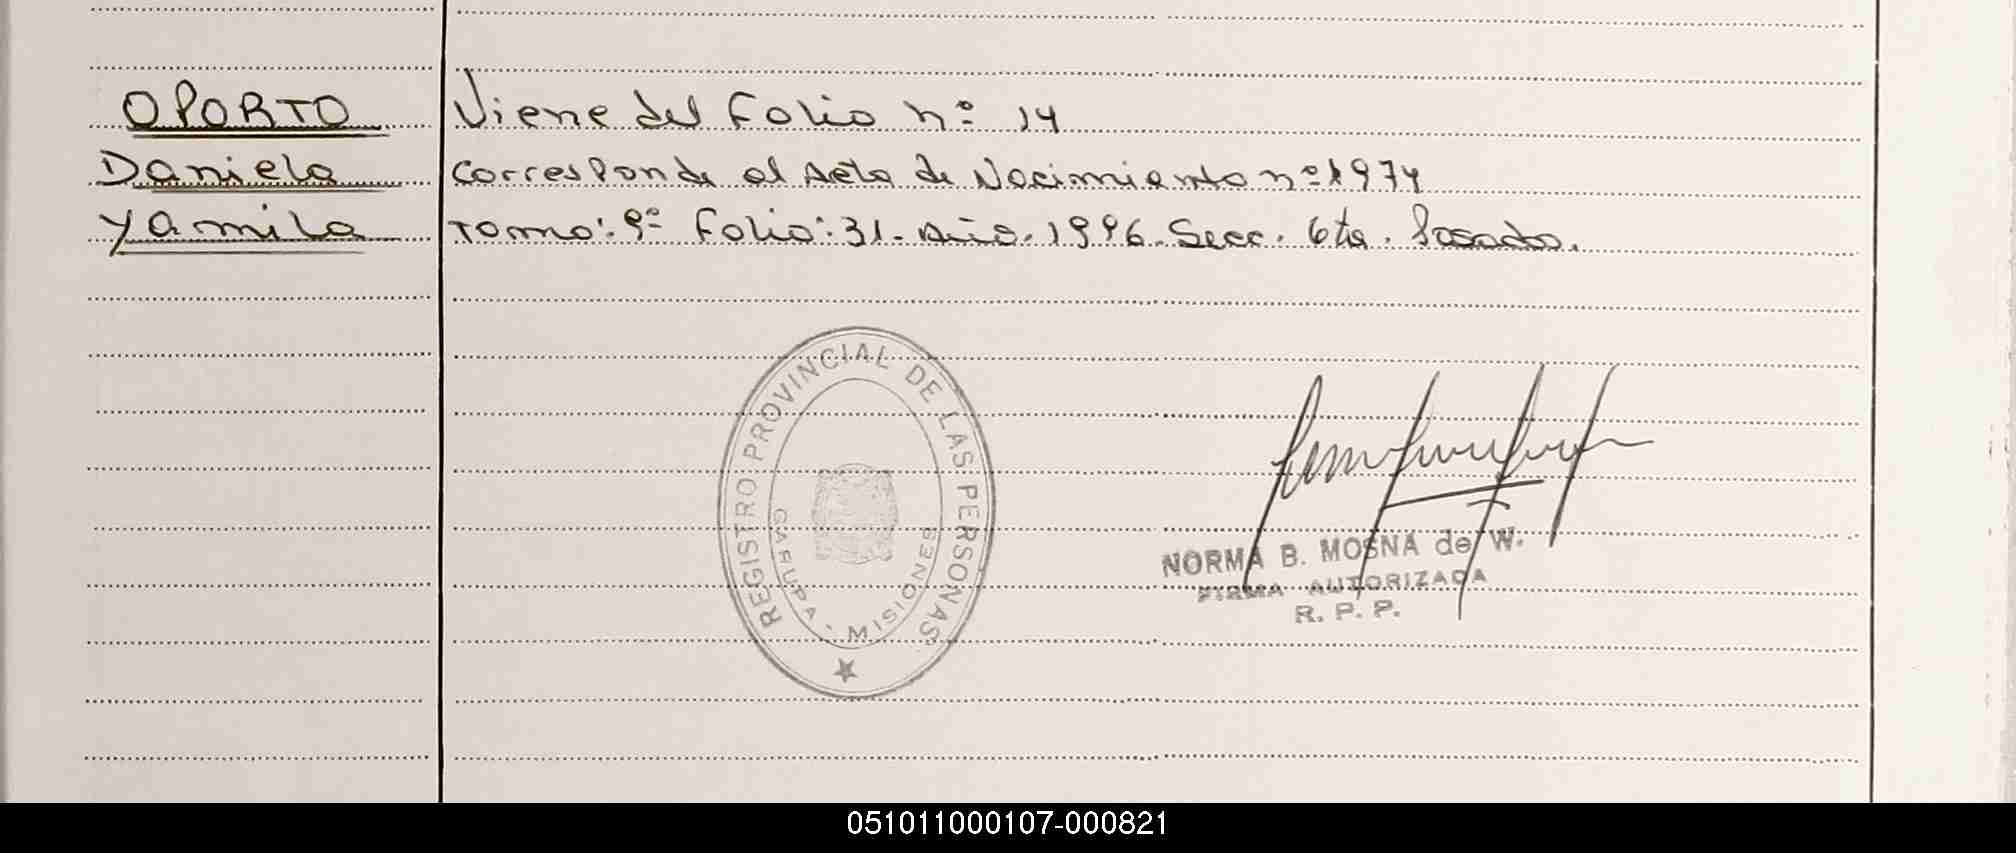 OPORTO
Daniela
Yamila
Viene del Folio nº 14
Corresponde al Acta de Nacimiento nº 1974
Tomo: 9º Folio: 31. Año. 1996. Secc. 6ta. Posadas.
REGISTRO PROVINCIAL DE LAS PERSONAS
GARUPA - MISIONES
NORMA B. MOSNA de W.
FIRMA AUTORIZADA
R. P. P.
051011000107-000821